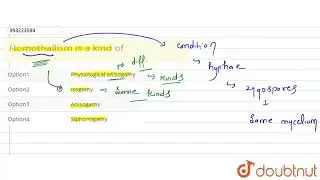 393223594
Homothallism is a kind of
condition
hyphae
zygospores
Same mycelium
diff
kinds
Option1 Physiological anisogamy
Option2 Isogamy
Same kinds
Option3 Anisogamy
Option4 Siphonogamy
doubtnut